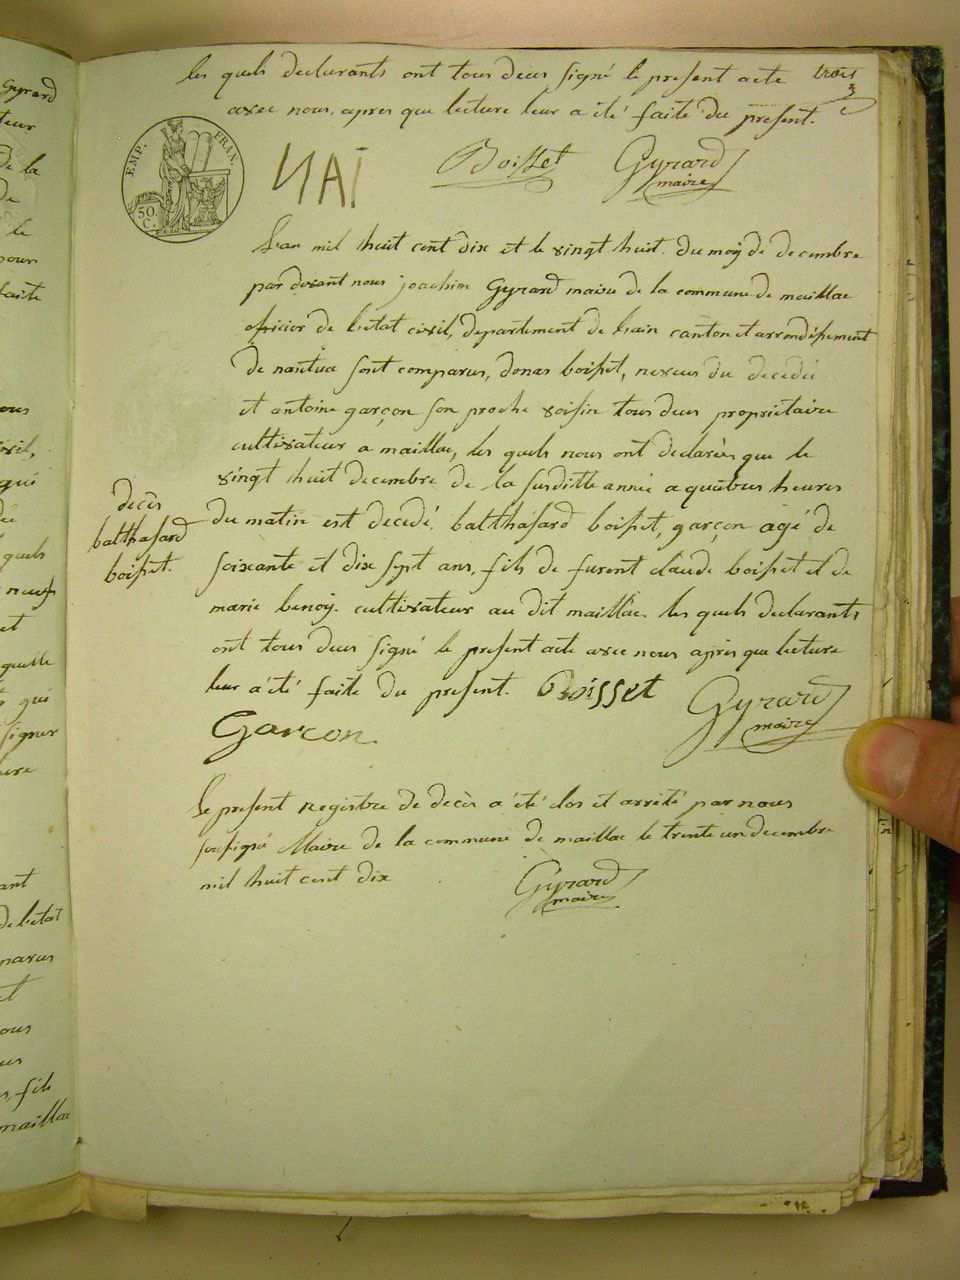 Gyrard
teur
de la
de
le
pour
faite
ous
ivil,
qui
quels
neuf
et
quelle
qui
signer
ure
ant
de letat
parus
et
ous
fils
maillac
les quels declarants ont tous deux signé le present acte
avec nous, apres que lecture leur a été faite du present.
trois
3
EMP. FRAN.
50.
C.
Boisset
Gyrard
maire
Lan mil huit cent dix et le vingt huit du moy de decembre
par devant nous joachim Gyrard maire de la commune de maillac
officier de letat civil, departement de lain canton et arrondissement
de nantua sont comparus, donas boisset, neveus du decedé
et antoine garçon son proche voisin tous deus propriétaire
cultivateur a maillac, les quels nous ont declarés que le
vingt huit decembre de la susditte année a quebus heures
du matin est decedé balthasard boisset, garçon agé de
soixante et dix sept ans, fils de furent claude boisset et de
marie benoy cultivateur au dit maillac les quels declarants
ont tous deus signé le present acte avec nous apres que lecture
leur a été faite du present. Boisset
Gyrard
maire
Garcon
decès
balthasard
boisset.
Le present Registre de decès a été clos et arrété par nous
sousigné Maire de la commune de maillac le trente un decembre
mil huit cent dix
Gyrard
maire